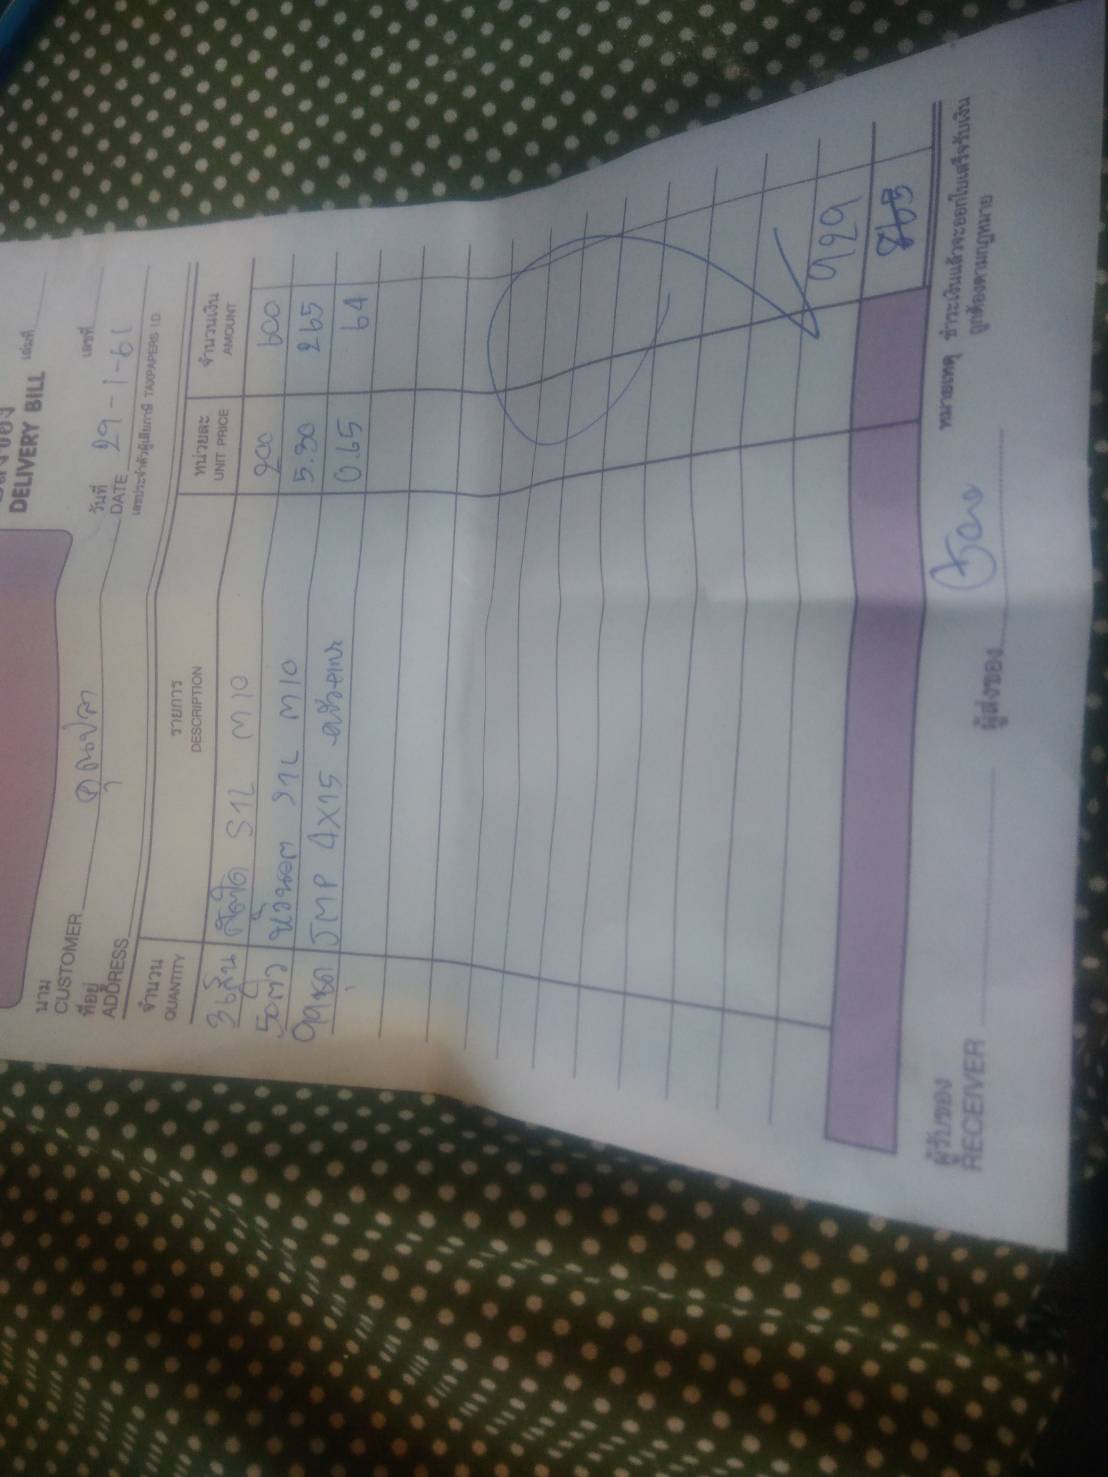 DELIVERY BILL เล่มที่
นาม
CUSTOMER
ที่อยู่
ADDRESS
วันที่
DATE 29-1-61 เลขที่
เลขประจำตัวผู้เสียภาษี TAXPAPERS ID
จำนวน QUANTITY รายการ DESCRIPTION หน่วยละ UNIT PRICE จำนวนเงิน AMOUNT
3 เส้น สตัด STL M10 200 600
50 ตัว หัวน็อต STL M10 5.30 265
99 ชุด JMP 4x15 0.65 64
929
865
ผู้รับของ
RECEIVER
ผู้ส่งของ
หมายเหตุ ชำระเงินแล้วจะออกใบเสร็จรับเงิน
ถูกต้องตามกฎหมาย